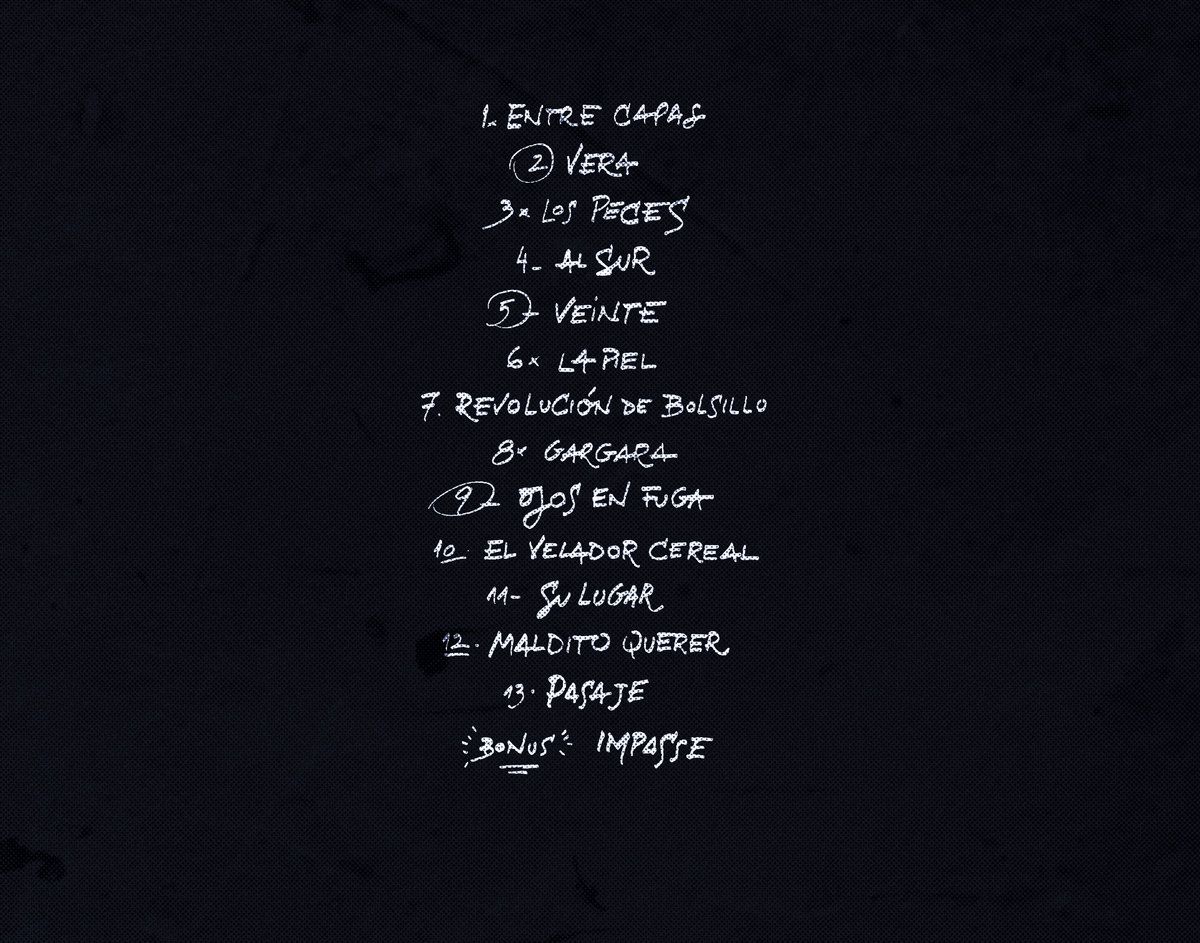 1. ENTRE CAPAS
2 VERA
3x LOS PECES
4- AL SUR
5- VEINTE
6x LA PIEL
7. REVOLUCIÓN DE BOLSILLO
8x GARGARA
9- OJOS EN FUGA
10 EL VELADOR CEREAL
11- SU LUGAR
12. MALDITO QUERER
13. PASAJE
BONUS IMPASSE